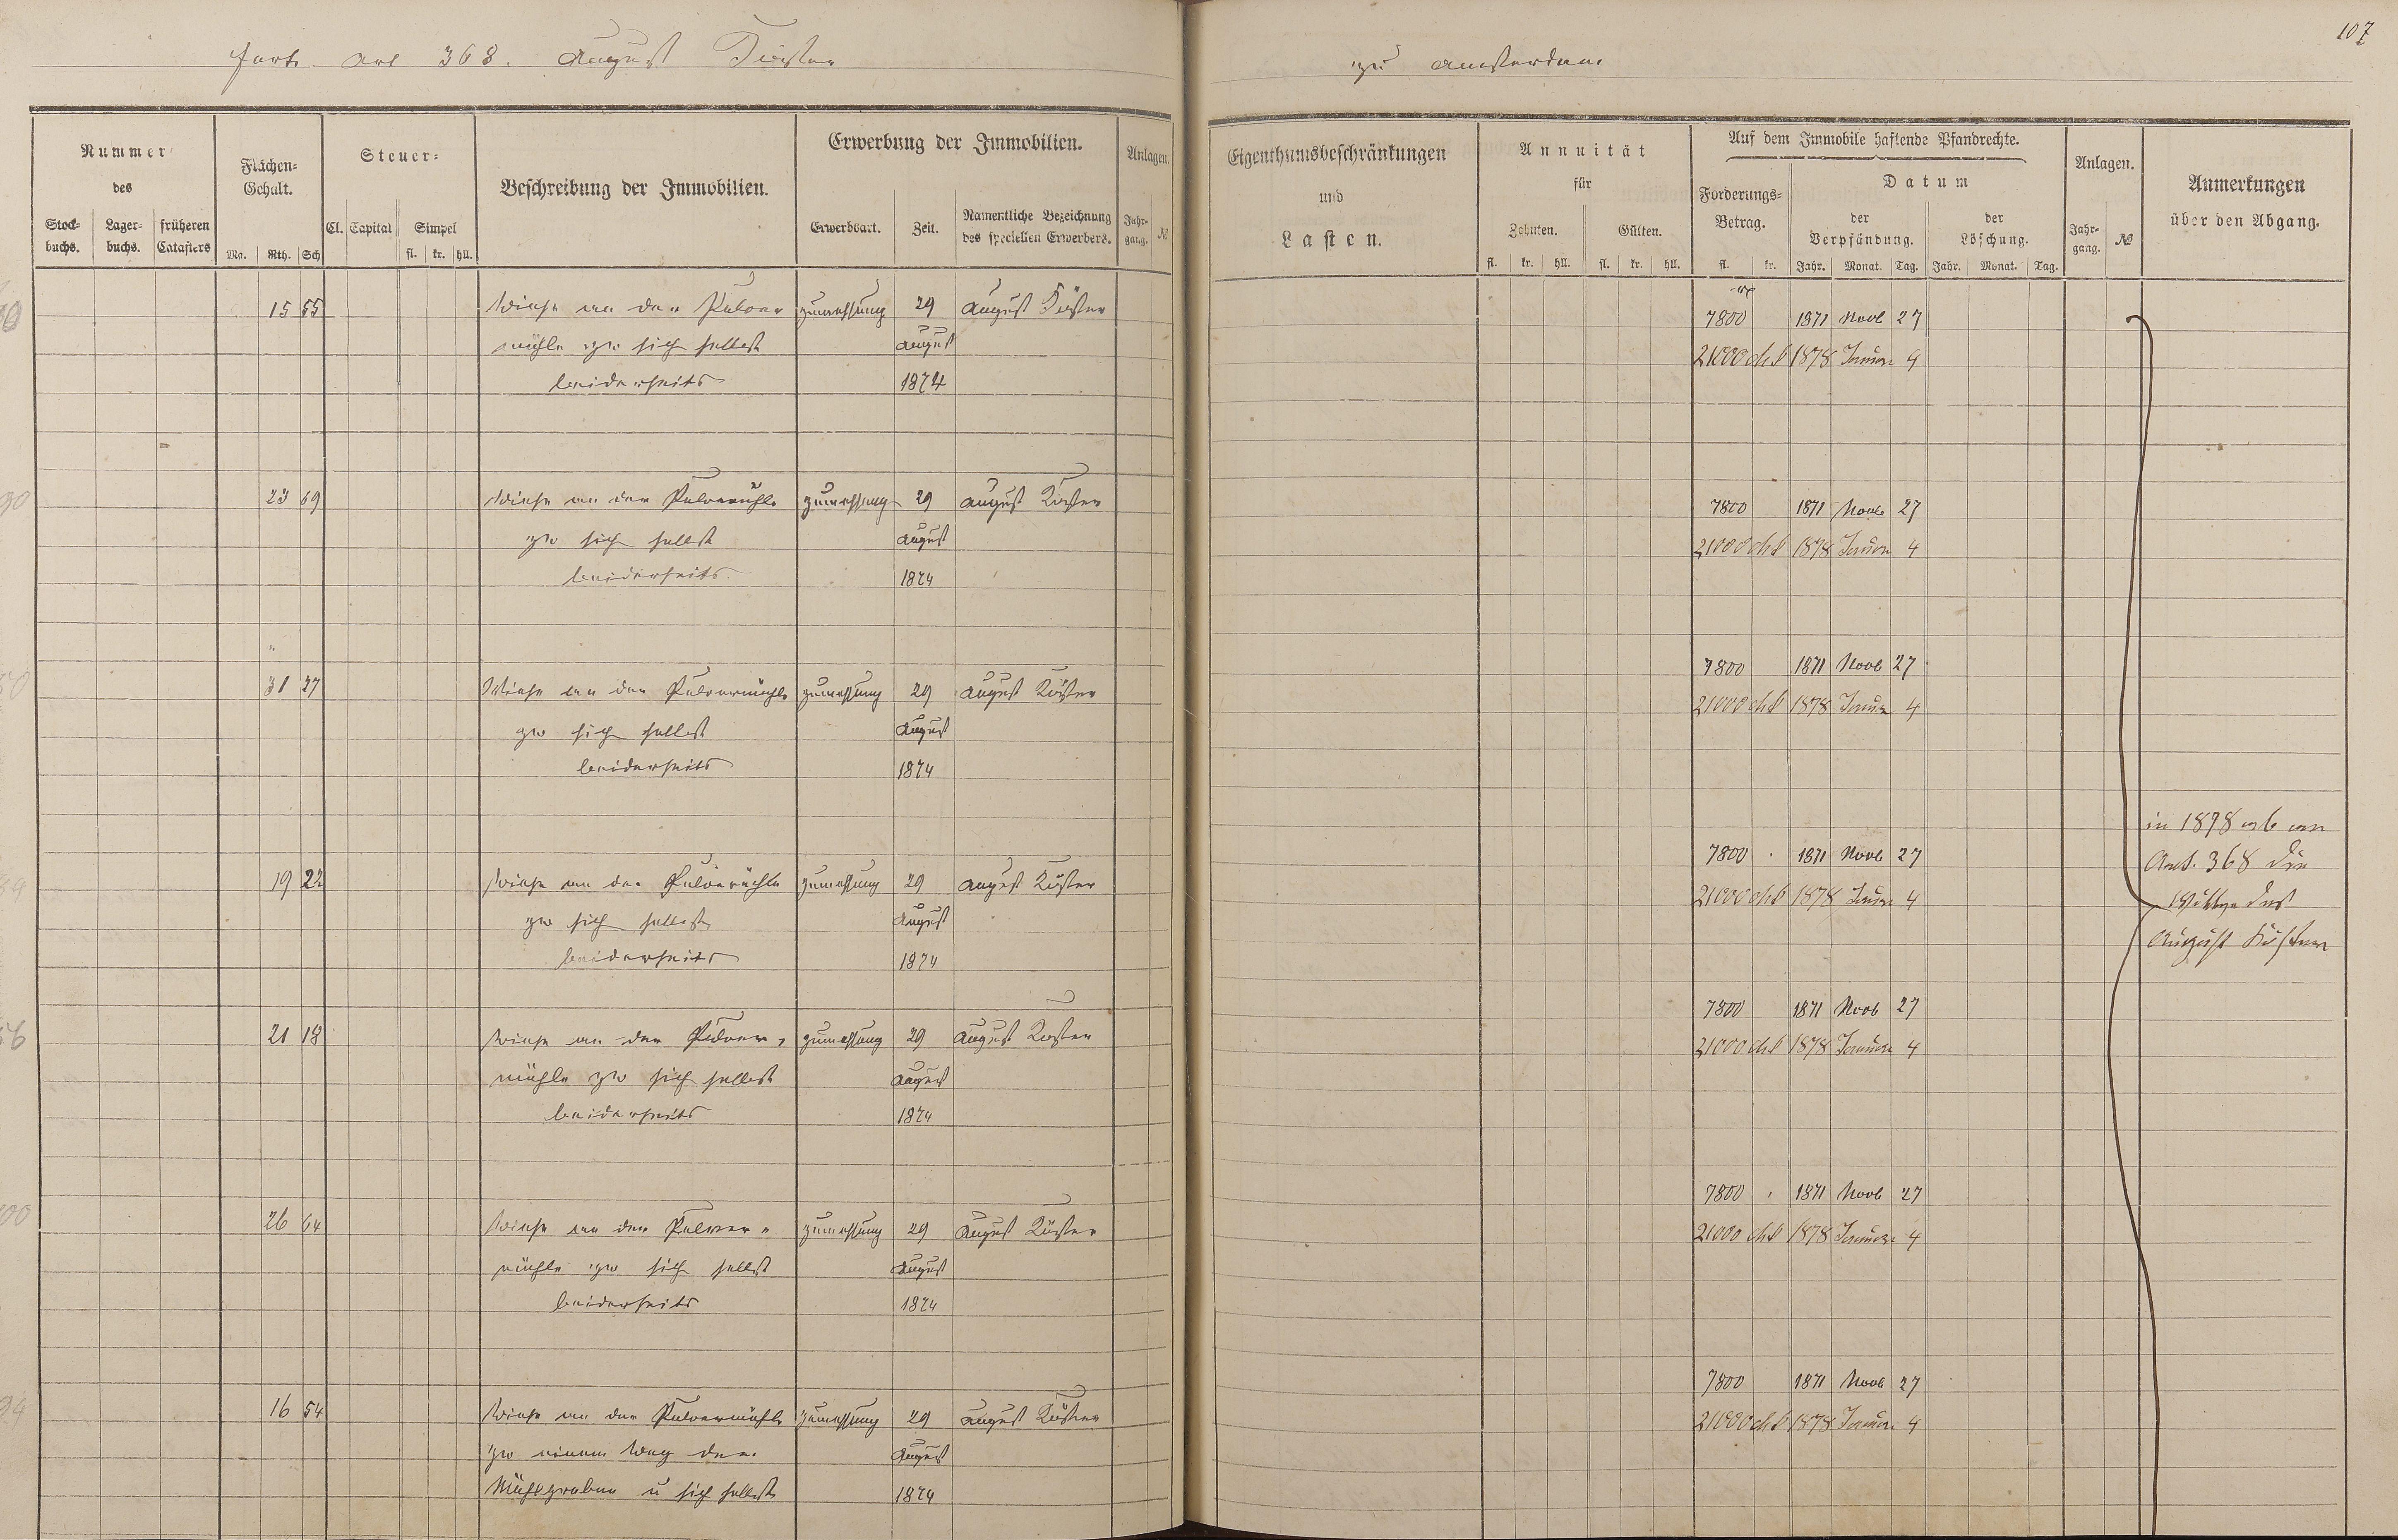 fort. Art 368. August Küster
zu Amsterdam
107
Nummer
des
Stock-
buchs.
Lager-
buchs.
früheren
Catasters
Flächen-
Gehalt.
Mo.
Rth.
Sch
Steuer-
Cl.
Capital
Simpel
fl.
kr.
hll.
Beschreibung der Immobilien.
Erwerbung der Immobilien.
Erwerbsart.
Zeit.
Namentliche Bezeichnung
des speciellen Erwerbers.
Anlagen.
Jahr-
gang.
№
Eigenthumsbeschränkungen
und
Lasten.
Annuität
für
Zehnten.
Gülten.
fl.
kr.
hll.
fl.
kr.
hll.
Auf dem Immobile haftende Pfandrechte.
Forderungs-
Betrag.
fl.
kr.
Datum
der
Verpfändung.
der
Löschung.
Jahr.
Monat.
Tag.
Jahr.
Monat.
Tag.
Anlagen.
Jahr-
gang.
№
Anmerkungen
über den Abgang.
15 55 Wiese an der Pulver zumessung 29 August Küster
mühle zw sich selbst August
beiderseits 1874
7800 1871 Novb 27
21000 1878 Januar 4
23 69 Wiese an der Pulvermühle zumessung 29 August Küster
zw sich selbst August
beiderseits 1874
7800 1871 Novb 27
21000 1878 Januar 4
31 27 Wiese an der Pulvermühle zumessung 29 August Küster
zw sich selbst August
beiderseits 1874
7800 1871 Novb 27
21000 1878 Januar 4
19 22 Wiese an der Pulvermühle zumessung 29 August Küster
zw sich selbst August
beiderseits 1874
7800 1871 Novb 27
21000 1878 Januar 4
21 18 Wiese an der Pulver- zumessung 29 August Küster
mühle zw sich selbst August
beiderseits 1874
7800 1871 Novb 27
21000 1878 Januar 4
26 64 Wiese an der Pulver- zumessung 29 August Küster
mühle zw sich selbst August
beiderseits 1874
7800 1871 Novb 27
21000 1878 Januar 4
16 54 Wiese an der Pulvermühle zumessung 29 August Küster
zw einem Weg dem August
Mühlgraben u sich selbst 1874
7800 1871 Novb 27
21000 1878 Januar 4
in 1878 ab an
Art. 368 die
Wittwe des
August Küster